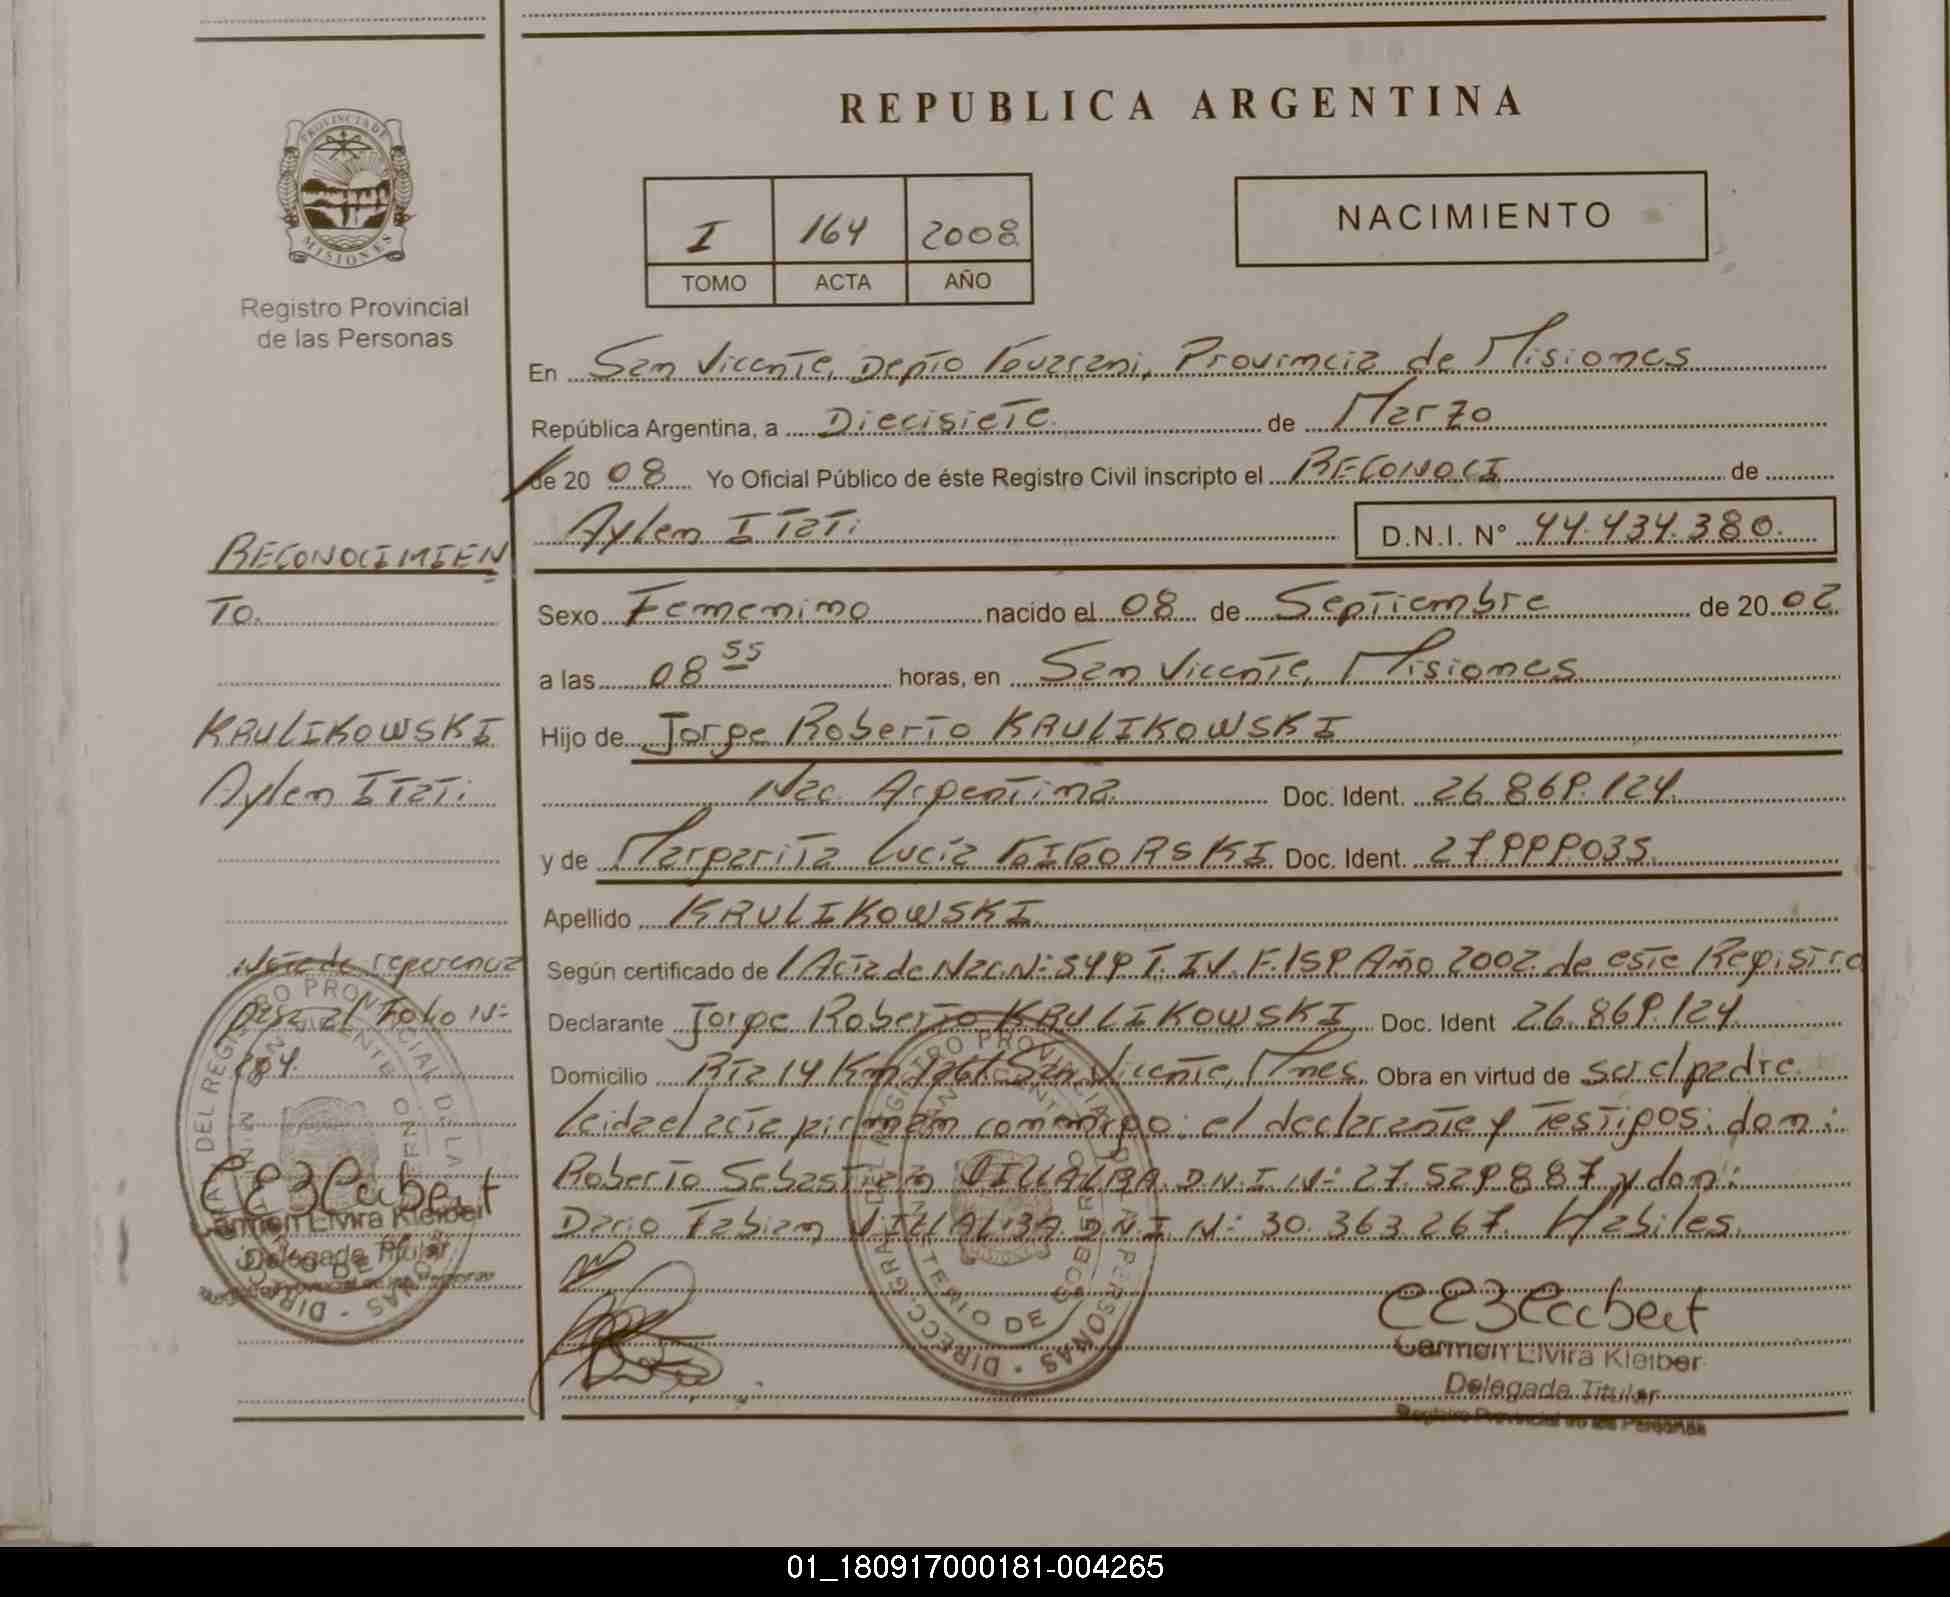 REPUBLICA ARGENTINA
PROVINCIA DE
MISIONES
Registro Provincial
de las Personas
I 164 2008
TOMO ACTA AÑO
NACIMIENTO
En San Vicente, Depto Guarani, Provincia de Misiones
República Argentina, a Diecisiete de Marzo
de 20 08 Yo Oficial Público de éste Registro Civil inscripto el RECONOCI de
Aylen Itati D.N.I. N° 44.434.380.
RECONOCIMIEN
TO.
Sexo Femenino nacido el 08 de Septiembre de 20 02
a las 08 55 horas, en San Vicente, Misiones
KRULIKOWSKI
Aylen Itati
Hijo de Jorge Roberto KRULIKOWSKI
Nac. Argentina Doc. Ident. 26.869.124
y de Margarita Lucía GIGORSKI Doc. Ident. 27.999035.
Apellido KRULIKOWSKI
Nota de referencia
pasa al Folio N:
184.
Según certificado de / Acta de Nac. N: 549 T. IV. F. 159 Año 2002 de este Registro
Declarante Jorge Roberto KRULIKOWSKI Doc. Ident 26.869.124
Domicilio Rta 14 Km 1261 San Vicente, Mnes. Obra en virtud de ser el padre
Leida el acta firman conmigo: el declarante y Testigos: don:
Roberto Sebastian VILLALBA D.N.I. N: 27.529887 y don:
Dario Fabian VILLALBA D.N.I. N: 30.363.267. Habiles.
Carmen Elvira Kleiber
Delegada Titular
Registro Provincial de las Personas
Carmen Elvira Kleiber
Delegada Titular
Registro Provincial de las Personas
01_180917000181-004265